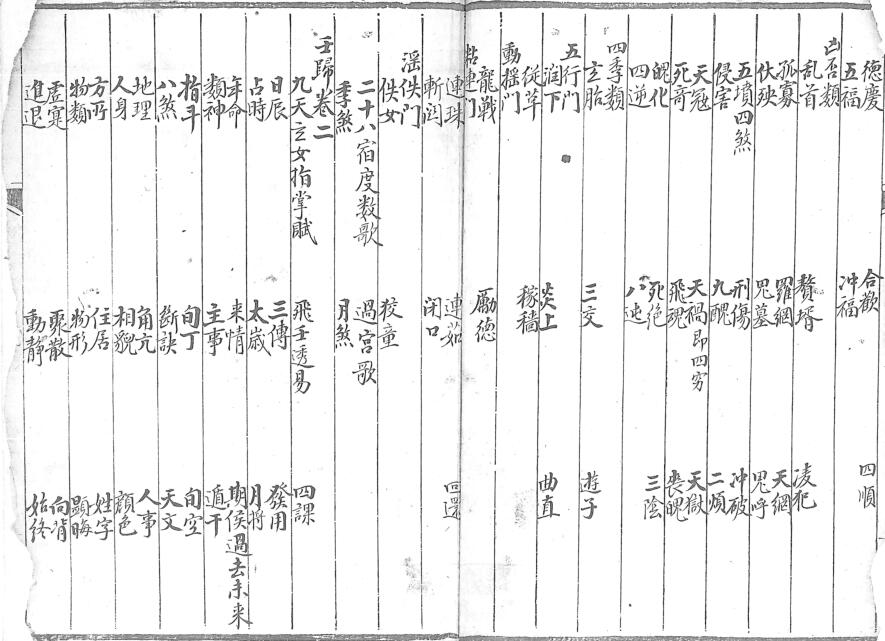 德慶 合歡 四順
五福 冲福
凶否類
乱首 贅壻 凌犯
孤寡 羅網 天網
伏殃 鬼墓 鬼呼
五墳四煞 刑傷 冲破
侵害 九醜 二煩
天冦 天禍即四穷 天獄
死奇 飛魂 喪魄
魄化 死绝 三陰
四逆 八迍
四季類
玄胎 三交 遊子
五行門
润下 炎上 曲直
従革 稼穡
動揺門
龍戦 勵德
粘連门
連珠 連茹 回還
斬関 闭口
滛佚门
佚女 狡童
二十八宿度数歌 過宫歌
季煞 月煞
壬歸卷二
九天玄女指掌賦 飛壬透易 四課
日辰 三傳 發用
占時 太歲 月將
年命 来情 期侯過去未来
類神 主事 遁干
指斗 旬丁 旬空
八煞 斷訣 天文
地理 角亢 人事
人身 相貌 顔色
方所 住居 姓字
物類 物形 顯晦
虚寔 聚散 向背
進退 動靜 始终